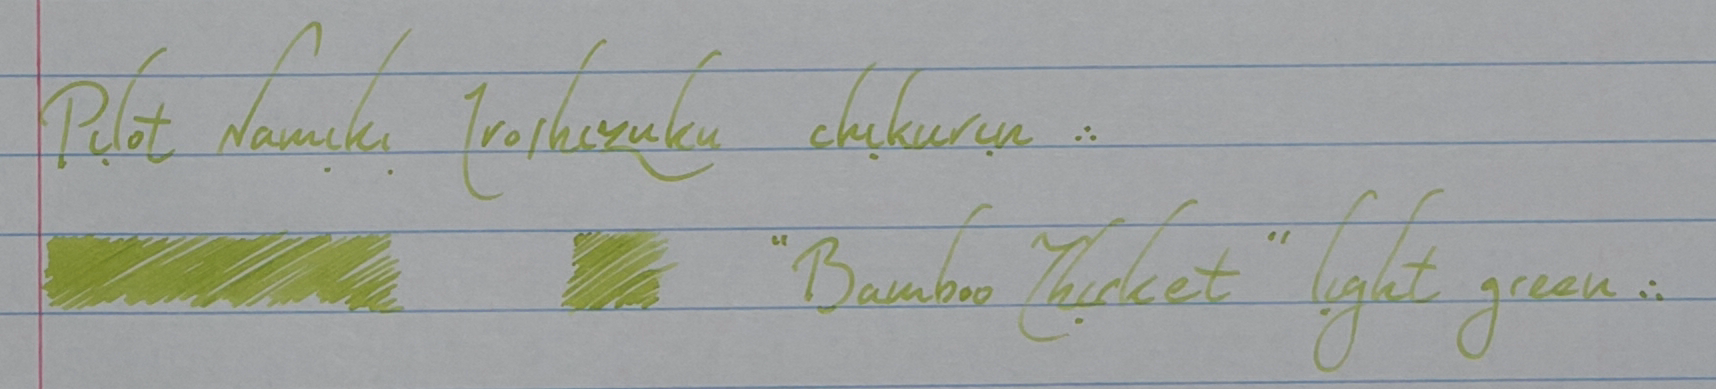 Pilot Namiki Iroshizuku chikurin ∴
"Bamboo Thicket" light green ∴